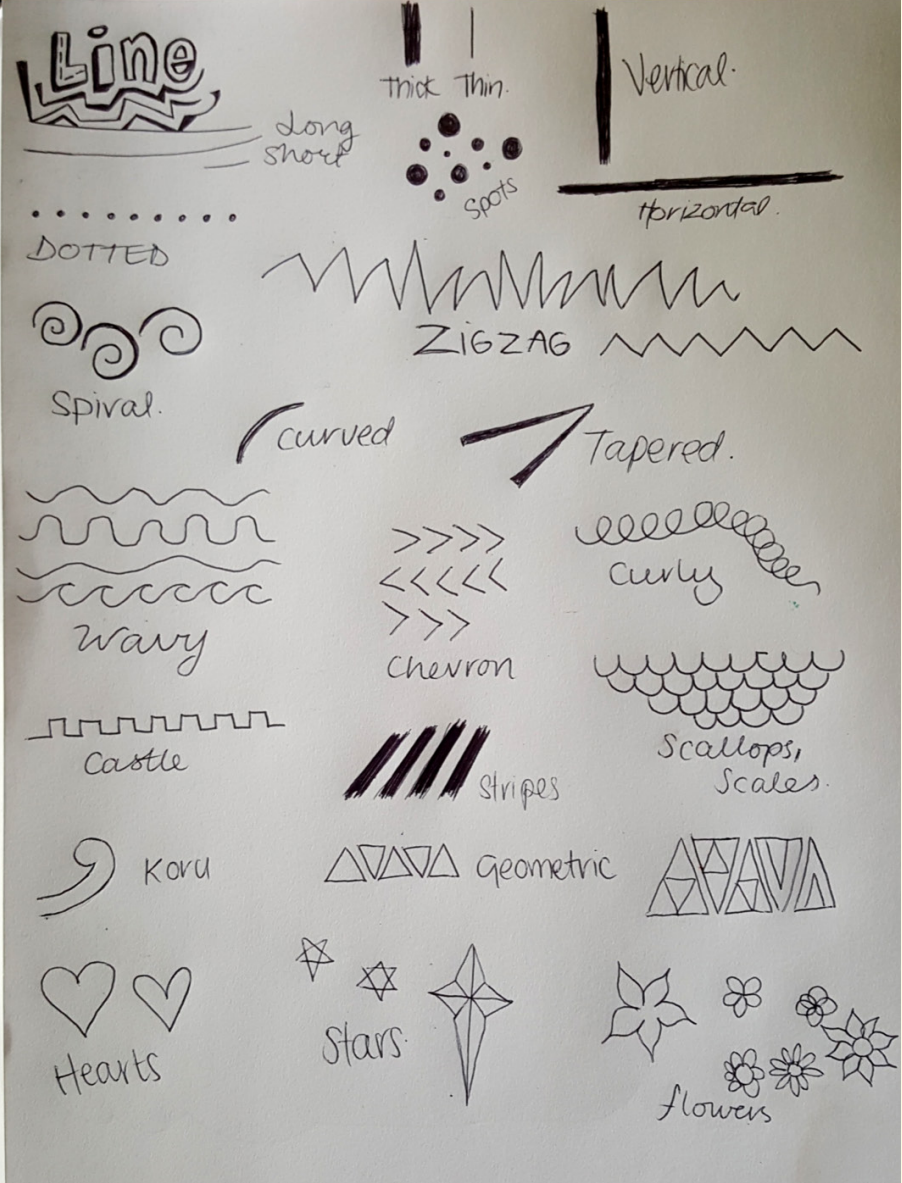 Line
Thick Thin.
Vertical.
Long
Short
Spots
Horizontal.
DOTTED
ZiGZAG
Spiral.
Curved
Tapered.
Curly
Wavy
Chevron
Castle
Stripes
Scallops,
Scales.
Koru
Geometric
Hearts
Stars.
flowers